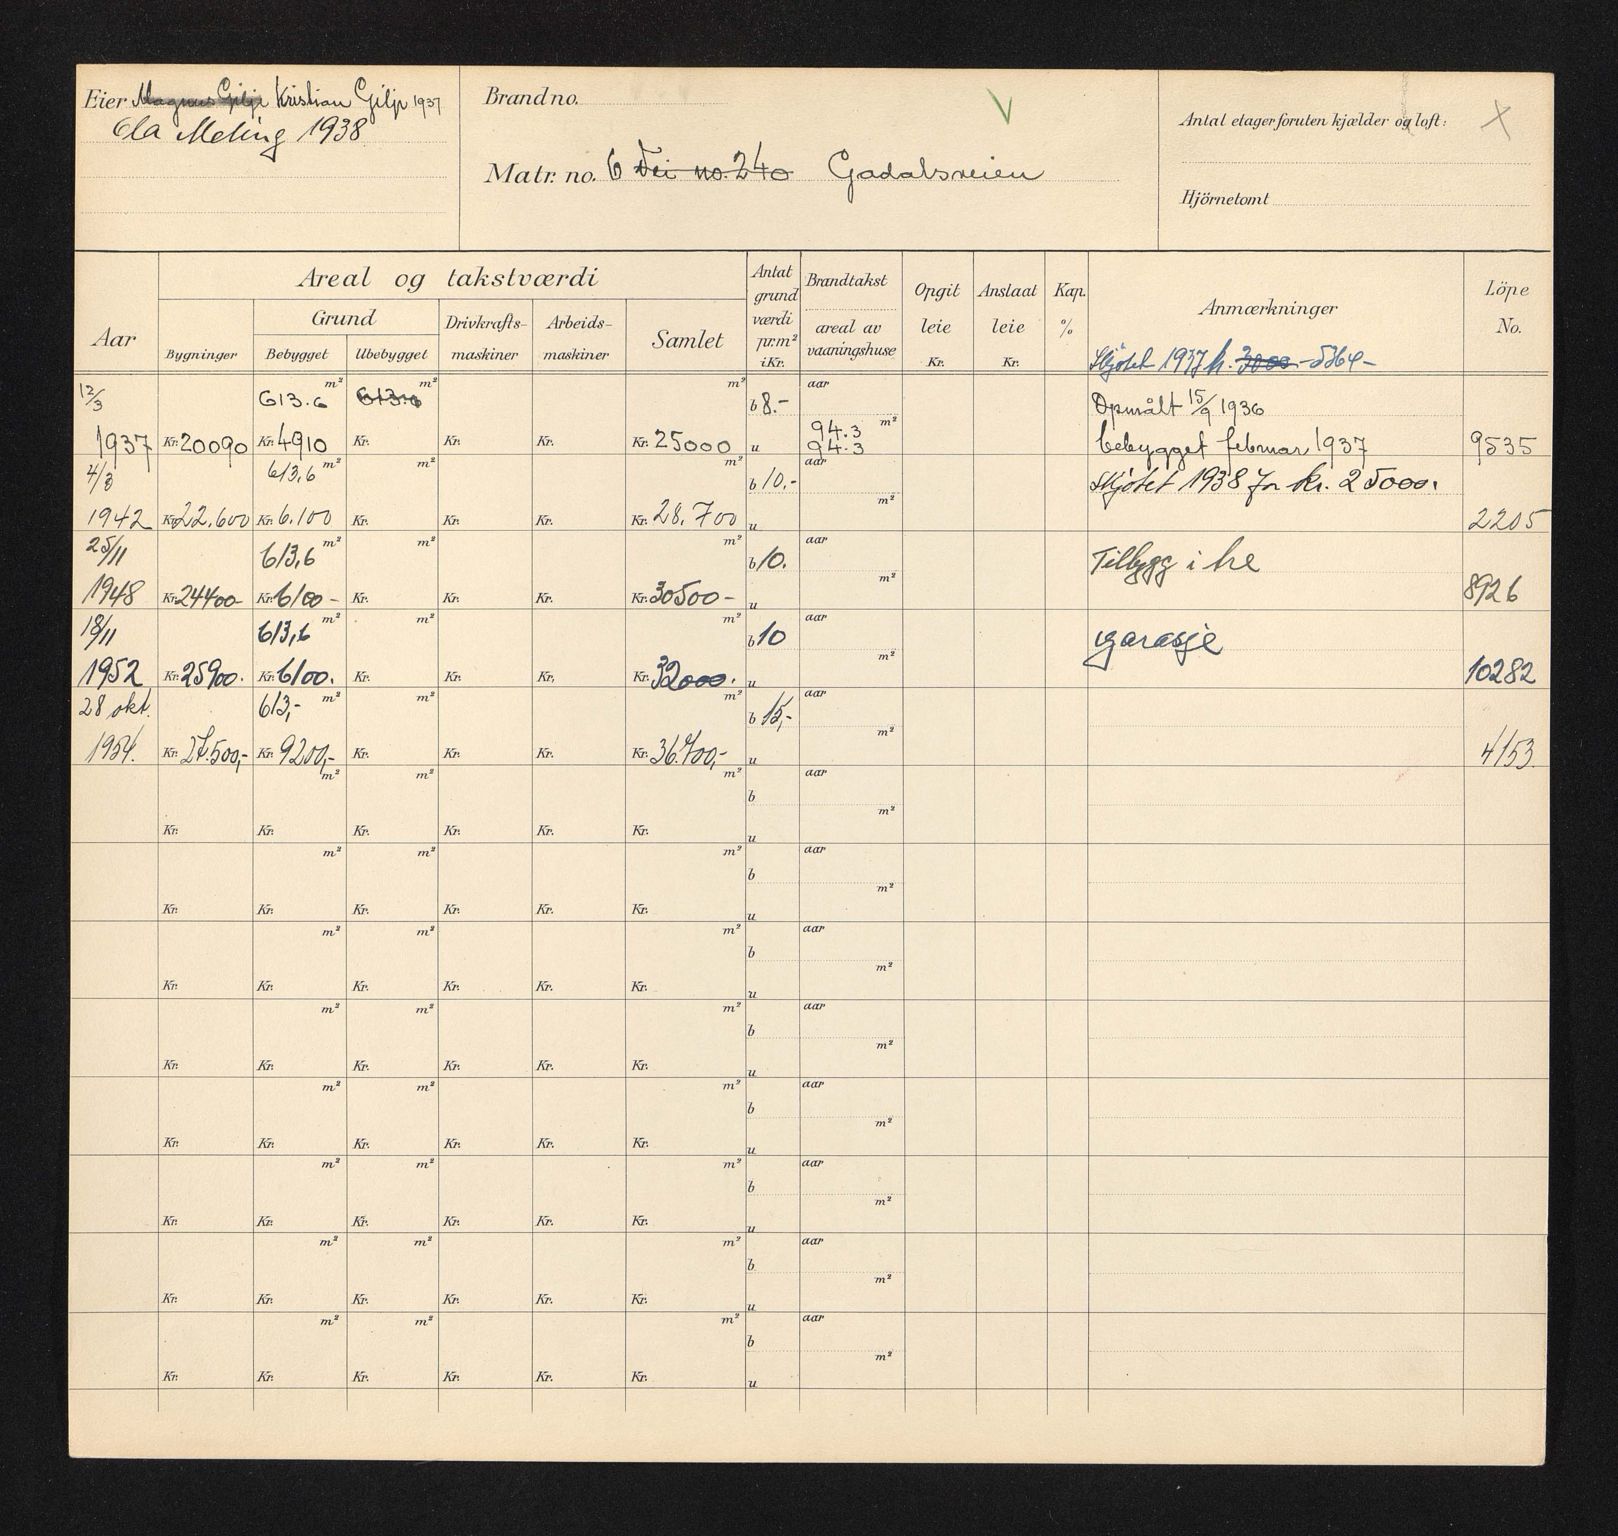 Eier Magnus Gilje Kristian Gilje 1937
Ola Meling 1938
Brandno.
V
Matr. no. 6 Vei no. 240 Gadalsveien
Antal etager foruten kjælder og loft: X
Hjörnetomt
Aar
Areal og takstværdi
Grund
Bygninger
Bebygget
Ubebygget
Drivkrafts-
maskiner
Arbeids-
maskiner
Samlet
Antat
grund
værdi
pr. m²
i Kr.
Brandtakst
areal av
vaaningshuse
Opgit
leie
Kr.
Anslaat
leie
Kr.
Kap.
%
Anmærkninger
Skjøtet 1937 kr. 3000 - 5364 -
Löpe
No.
12/3 613.6 m² 613.6 m² m² b 8.- aar Opmålt 15/9 1936
94.3 m²
1937 Kr. 20090 Kr. 4910 Kr. Kr. Kr. Kr. 25000 u 94.3 bebygget februar 1937 9535
4/3 613,6 m² m² m² b 10,- aar Skjøtet 1938 for kr. 25000.
m²
1942 Kr. 22.600 Kr. 6.100 Kr. Kr. Kr. Kr. 28.700 u 2205
25/11 613,6 m² m² m² b 10. aar Tilbygg i tre
m²
1948 Kr. 24400- Kr. 6100- Kr. Kr. Kr. Kr. 30500- u 8926
18/11 613,6 m² m² m² b 10 aar garasje
m²
1952 Kr. 25900. Kr. 6100. Kr. Kr. Kr. Kr. 32000. u 10282
28 okt. 613,- m² m² m² b 15,- aar
m²
1954. Kr. 27.500,- Kr. 9200,- Kr. Kr. Kr. Kr. 36.700,- u 4153.
m² m² m² b aar
m²
Kr. Kr. Kr. Kr. Kr. Kr. u
m² m² m² b aar
m²
Kr. Kr. Kr. Kr. Kr. Kr. u
m² m² m² b aar
m²
Kr. Kr. Kr. Kr. Kr. Kr. u
m² m² m² b aar
m²
Kr. Kr. Kr. Kr. Kr. Kr. u
m² m² m² b aar
m²
Kr. Kr. Kr. Kr. Kr. Kr. u
m² m² m² b aar
m²
Kr. Kr. Kr. Kr. Kr. Kr. u
m² m² m² b aar
m²
Kr. Kr. Kr. Kr. Kr. Kr. u
m² m² m² b aar
m²
Kr. Kr. Kr. Kr. Kr. Kr. u